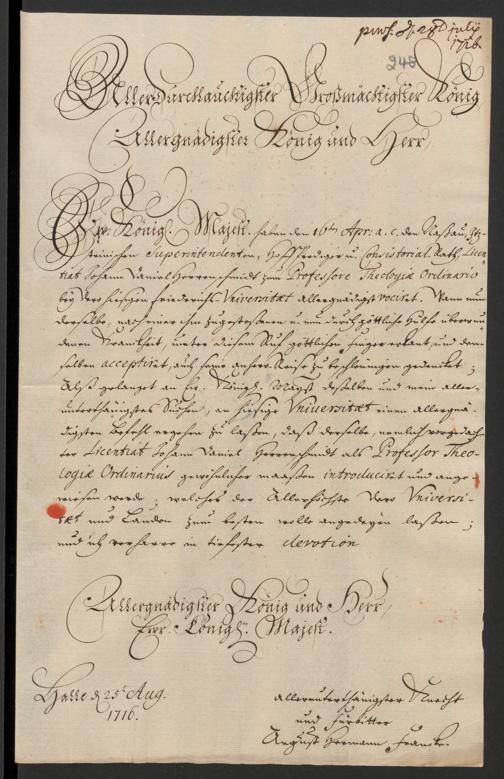 1716.
248
Allerdurchlauchtigster Großmächtigster König
Allergnädigster König und Herr
Ew. Königl. Majest. haben den 16ten Apr: a. c. den Naßau
steinischen Superintendenten, Hoffprediger u. Consistorial Rath, Licen
tiat Johann Daniel Herrnschmidt zum Professore Theologiæ Ordinario
bey Dero hiesigen Friederichs Universitæt allergnädigst vociret. Wann nun
derselbe, nach einer ihm zugestoßenen u. nun durch göttliche Hülfe überwun
denen Kranckheit, unter diesem Ruf göttlichen Finger erkant, und den
selben acceptiret, auch seine anhero Reise zu beschleunigen gedencket;
Alß gelanget an Ew. Königl. Majest. desselben und mein aller-
unterthänigstes Suchen, an hiesige Universitæt einen allergnä-
digsten Befehl ergehen zu laßen, daß derselbe, nemlich vorgedach
ter Licentiat Johann Daniel Herrnschmidt als Professor Theo-
logiæ Ordinarius gewöhnlicher maaßen introduciret und ange-
wiesen werde; welches der Allerhöchste Dero Universi-
tæt und Landen zum besten wolle angedeyen laßen;
und ich verharre in tiefester devotion
Allergnädigster König und Herr
Ewr. Königl. Majest.
Halle d 25t Aug.
1716.
allerunterthänigster Knecht
und Fürbitter
August Hermann Francke.